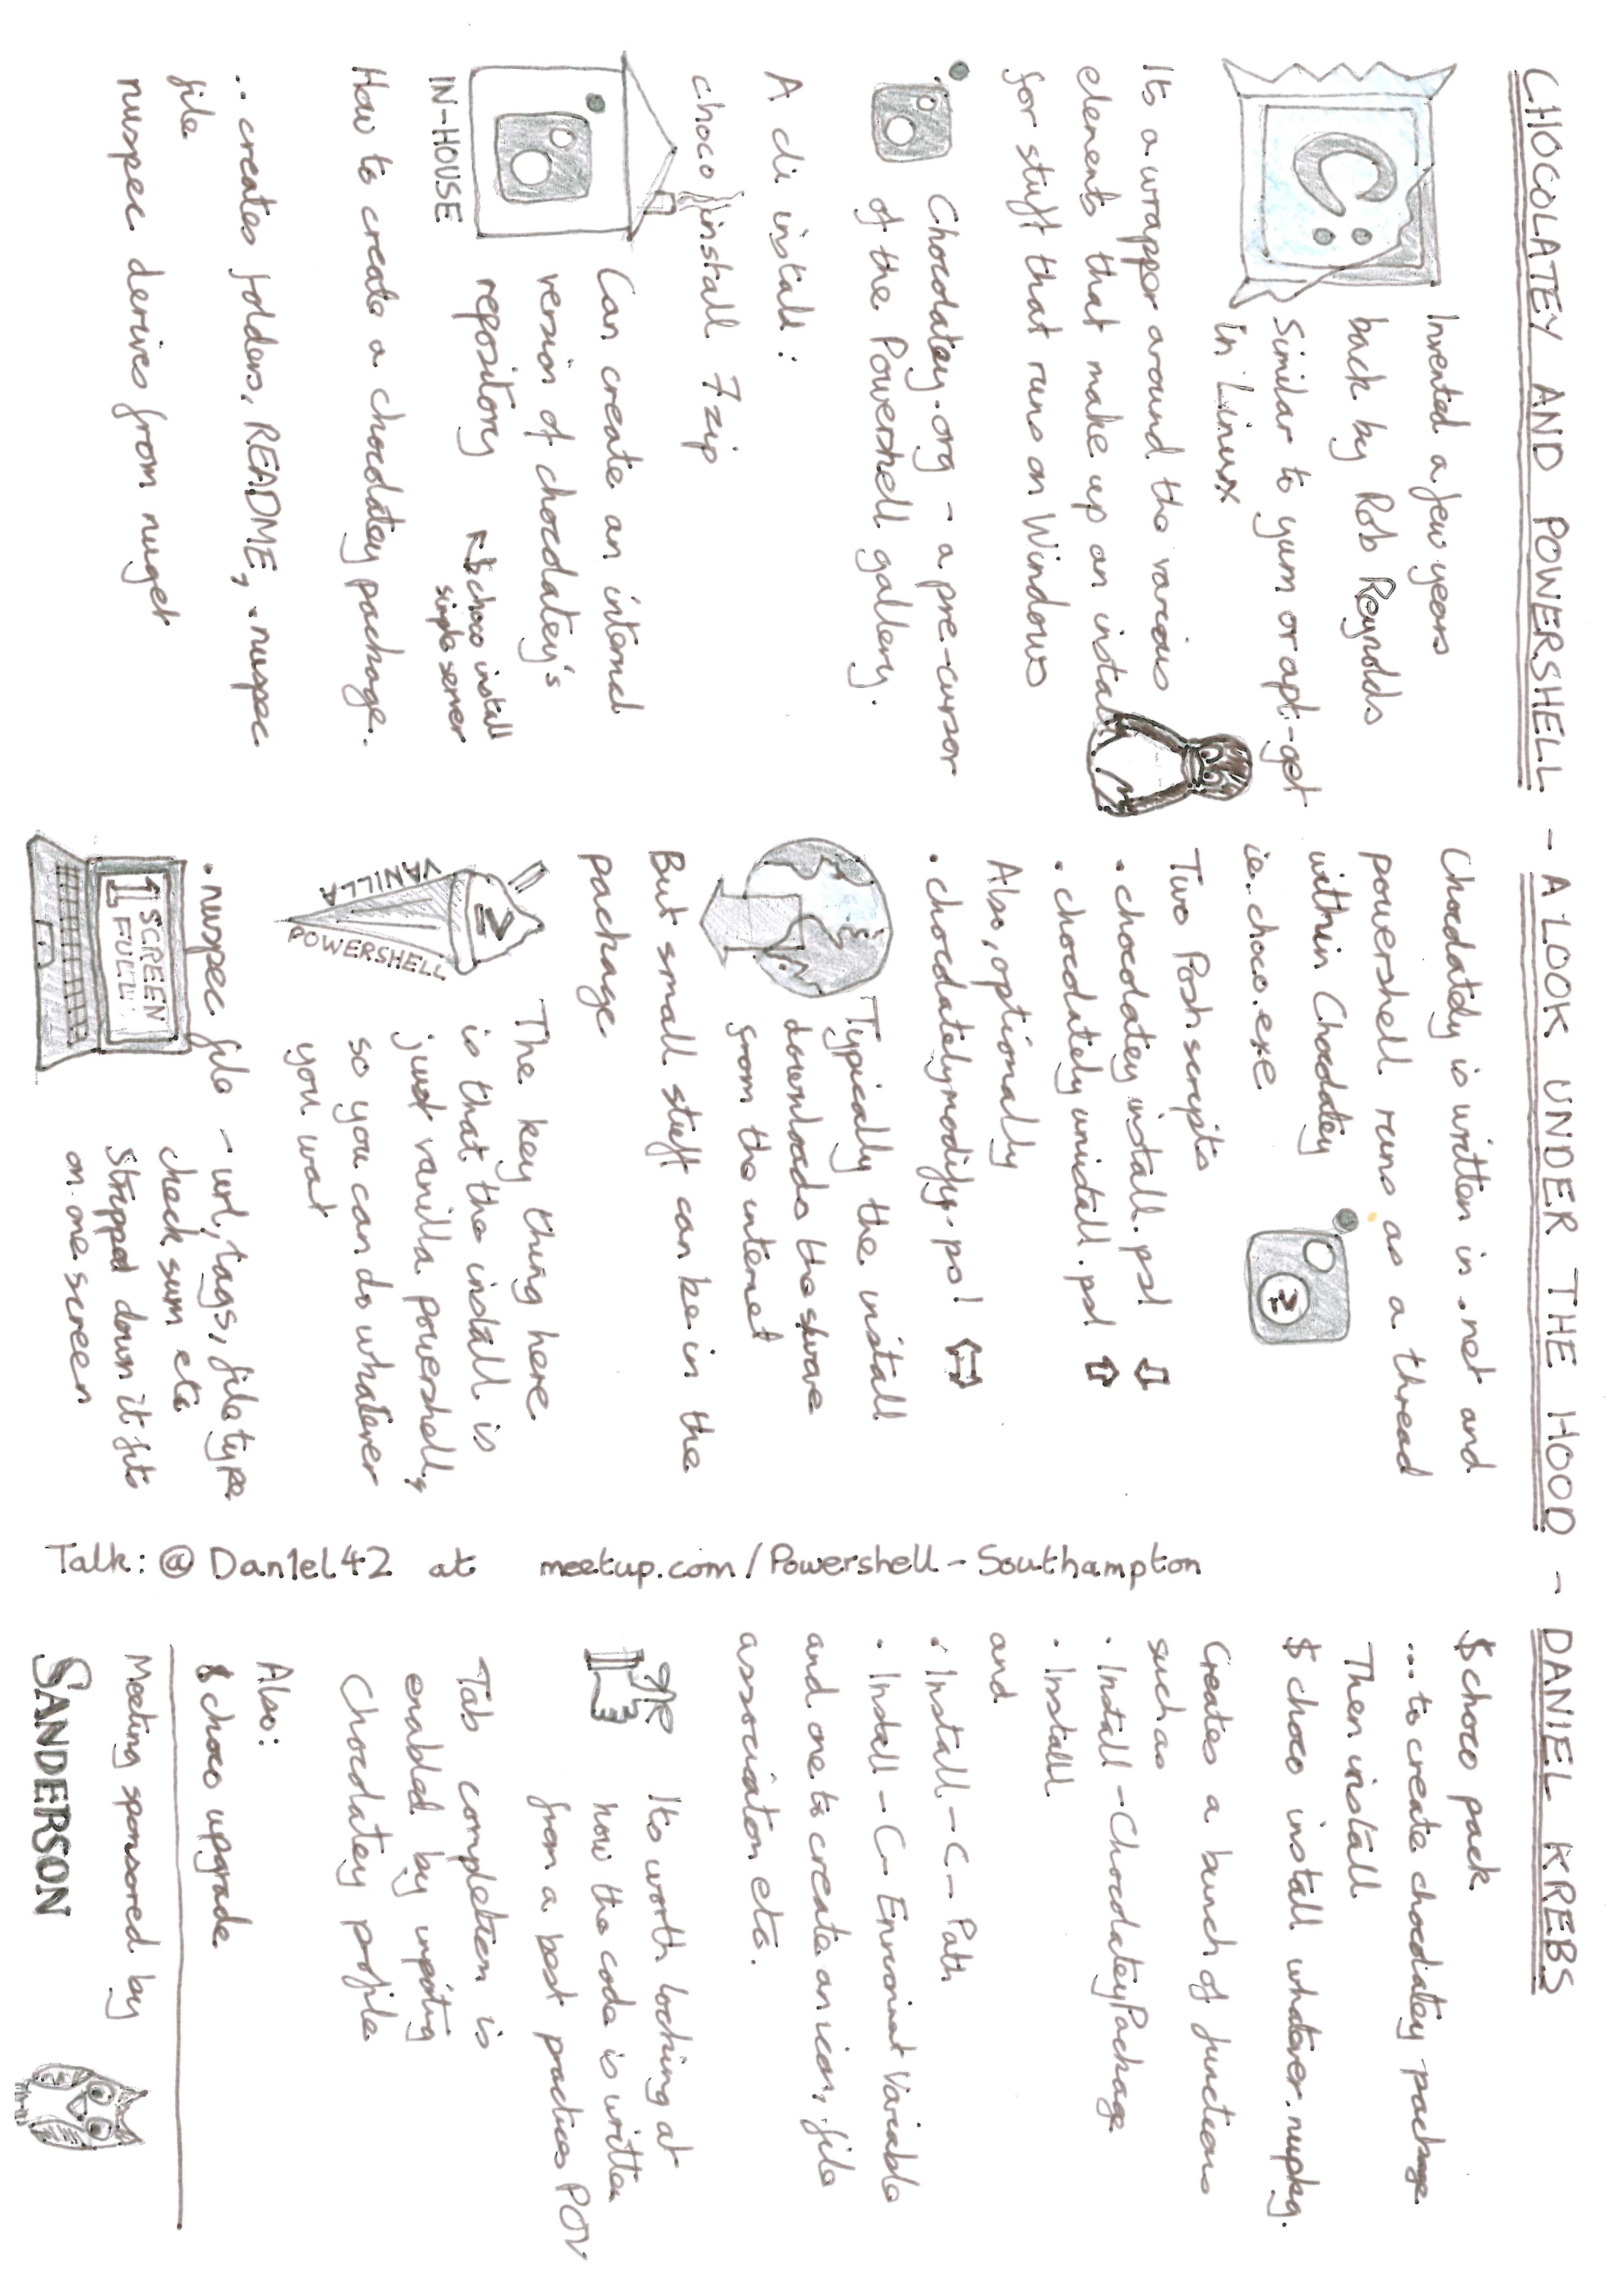 CHOCOLATEY AND POWERSHELL - A LOOK UNDER THE HOOD - DANIEL KREBS
C:
Invented a few years
back by Rob Reynolds
Similar to yum or apt-get
in Linux
Its a wrapper around the various
elements that make up an install
for stuff that runs on Windows
Chocolatey.org - a pre-cursor
of the Powershell gallery.
A cli install:
choco install 7zip
Can create an internal
version of chocolatey's
repository
$ choco install
simple server
IN-HOUSE
How to create a chocolatey package.
.. creates folders, README, .nuspec
file
nuspec derives from nuget
Chocolately is written in .net and
powershell runs as a thread
within Chocolatey
ie. choco.exe
Two Posh scripts
• chocolatey install.ps1
• chocolately uninstall.ps1
Also, optionally
• chocolatelymodify.ps1
Typically the install
downloads the
from the internet
But small stuff can be in the
package
The key thing here
is that the install is
just vanilla powershell,
so you can do whatever
you wat
VANILLA
POWERSHELL
.nuspec file - url, tags, file type
check sum etc
Stripped down it fits
on one screen
1 SCREEN
FULL
Talk: @Dan1el42 at meetup.com/Powershell-Southampton
$ choco pack
... to create chocolatey package
Then install
$ choco install whatever.nupkg.
Creates a bunch of functions
such as
• Install-ChocolateyPackage
• Install
and
• Install-C-Path
• Install-C- Variable
and one to create an icon, file
associaton etc.
Its worth looking at
how the code is written
from a best practices POV
Tab completion is
enabled by
Chocolatey profile
Also:
$ choco upgrade
Meeting sponsored by
SANDERSON